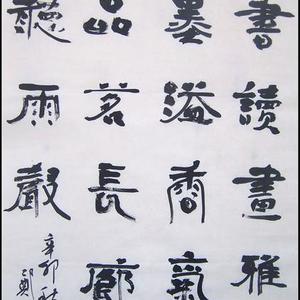 書讀畫雅
墨溢香氣
品茗長廊
聽雨聲
辛卯秋